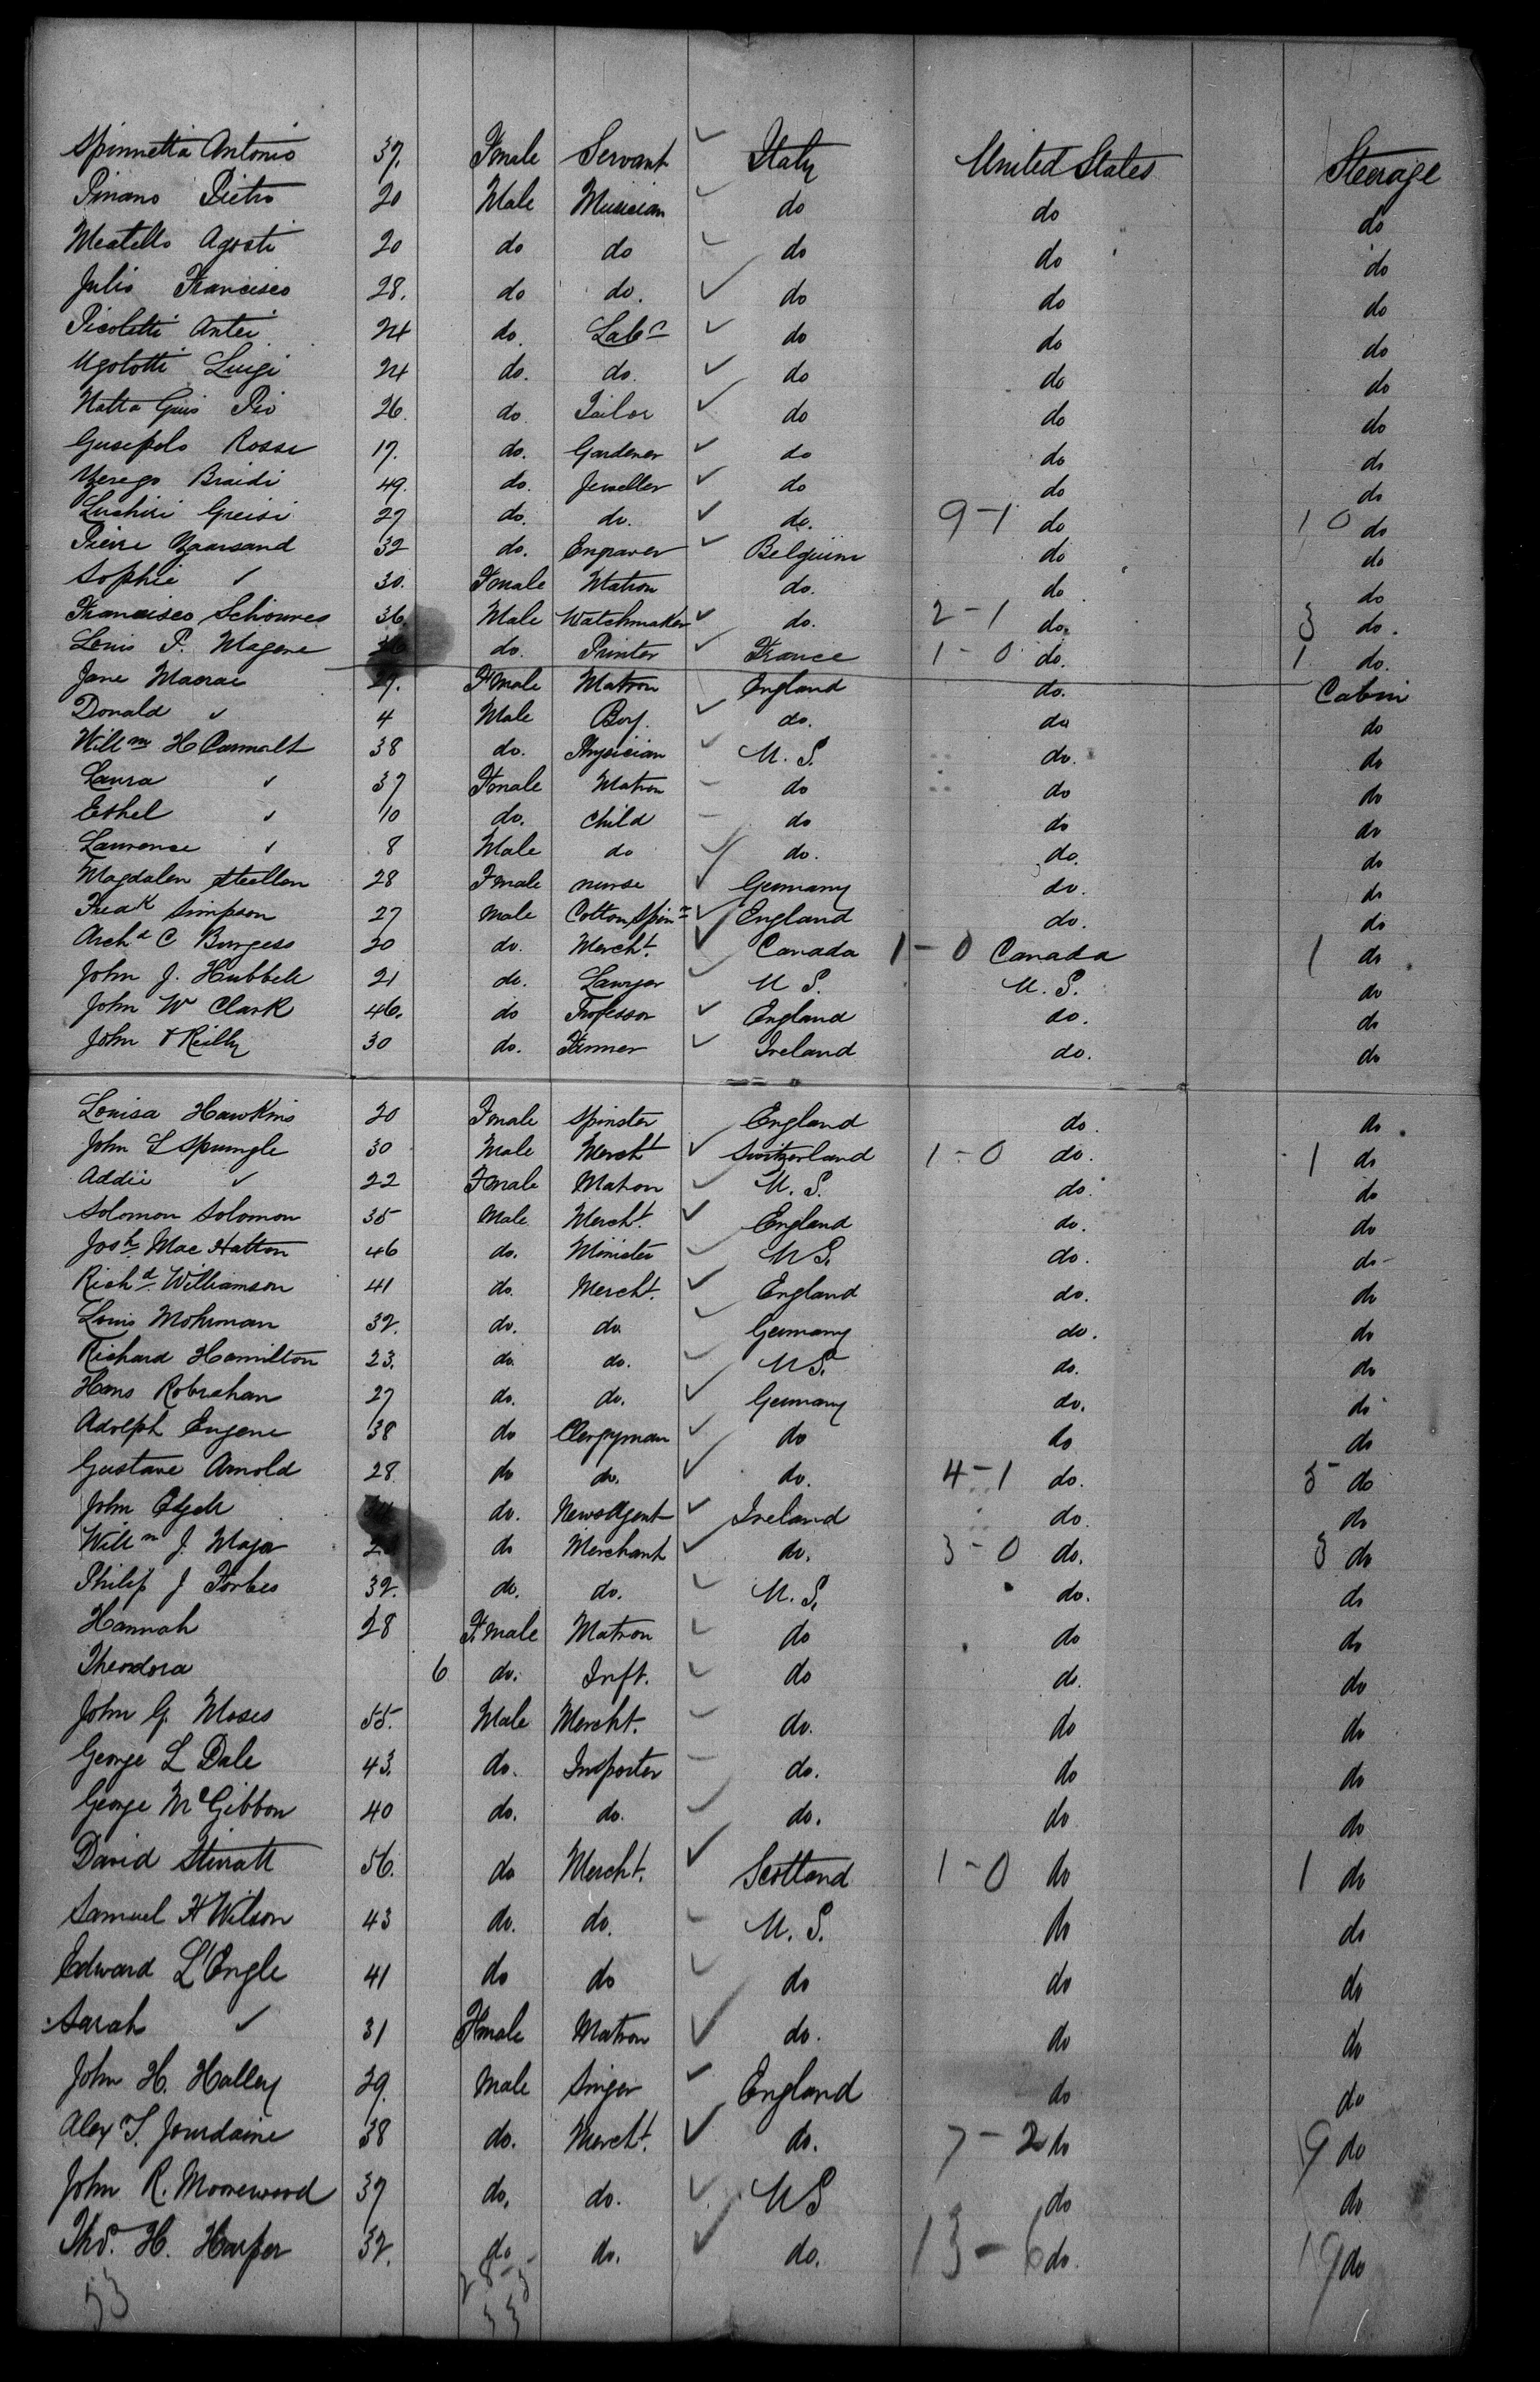 Spinnetta Antonio 37. Female Servant ✓ Italy United States Steerage
Pinano Pietro 20 Male Musician ✓ do do do
Meatello Agosti 20 do do ✓ do do do
Julio Francisco 28. do do. ✓ do do do
Picoletti Antei 24 do. Labr ✓ do do do
Ugolotti Luigi 24 do. do. ✓ do do do
Natta Guis Pio 26. do Tailor ✓ do do do
Gusepolo Rosse 17. do. Gardener ✓ do do do
Braidi 49. do. Jeweller ✓ do do do
Greisi 27 do. do. ✓ do. 9-1 do 10 do
Pierre 32 do. Engraver ✓ Belguim do do
Sophie ✓ 30. Female Matron do. do do
Francisco Schoures 36. Male Watchmaker ✓ do. 2-1 do. 3 do.
Louis P. Magere do. Printer ✓ France 1-0 do. 1 do.
Jane Macrae 27. Female Matron England do. Cabin
Donald ✓ 4 Male Boy. ✓ do. do do
Willm H Carmalt 38 do. Physician ✓ U. S. do. do
Laura ✓ 37 Female Matron - do do do
Ethel ✓ 10 do. Child - do do do
Lawrence ✓ 8 Male do ✓ do. do. do
Magdalen 28 Female nurse ✓ Germany do. do
Freak Simpson 27 Male Cotton Spinr ✓ England do. do
Archd C Burgess 20 do. Mercht. ✓ Canada 1-0 Canada 1 do
John J. Hubbell 21 do. Lawyer ✓ U S. U. S. do
John W Clark 46. do Professor ✓ England do. do
John O'Reilly 30 do. Farmer ✓ Ireland do. do
Louisa Hawkins 20 Female Spinster England do. do
John L Spungle 30 Male Mercht ✓ Switzerland 1-0 do. 1 do
Addie ✓ 22 Female Matron ✓ U. S. do. do
Solomon Solomon 35 Male Mercht. ✓ England do. do
Josh. Mac Hatton 46 do. Minister ✓ U S. do. do
Richd. Williamson 41 do. Mercht. ✓ England do. do
Louis Mohrman 32. do. do ✓ Germany do. do
Richard Hamilton 23. do. do. ✓ U S. do. do
Hans Robrahan 27 do. do. ✓ Germany do. do
Adolph Eugene 38 do Clergyman ✓ do do do
Gustave Arnold 28 do do. ✓ do. 4-1 do. 5 do
John do. News Agent ✓ Ireland do. do
Willm J. Major do Merchant ✓ do. 3-0 do. 3 do
Philip J Forbes 32. do. do. ✓ U. S. do. do
Hannah 28 Female Matron ✓ do do do
Theodora 6 do. Inft. ✓ do do. do
John G. Moses 55. Male Mercht. ✓ do. do do
George L Dale 43. do. Importer - do. do do
George McGibbon 40 do. do. ✓ do. do do
David Stirratt 56. do Mercht. ✓ Scotland 1-0 do 1 do
Samuel H Wilson 43 do. do. - U. S. do do
Edward L'Engle 41 do do ✓ do do do
Sarah ✓ 31 Female Matron ✓ do. do do
John H. Halley 29. Male Singer ✓ England do do
Alex S. Jourdaine 38 do. Mercht. ✓ do. 7-2 do 9 do
John R. Moorewood 37 do. do. ✓ U S do do
Thos. H. Harper 32. do do. ✓ do. 13-6 do. 19 do
53